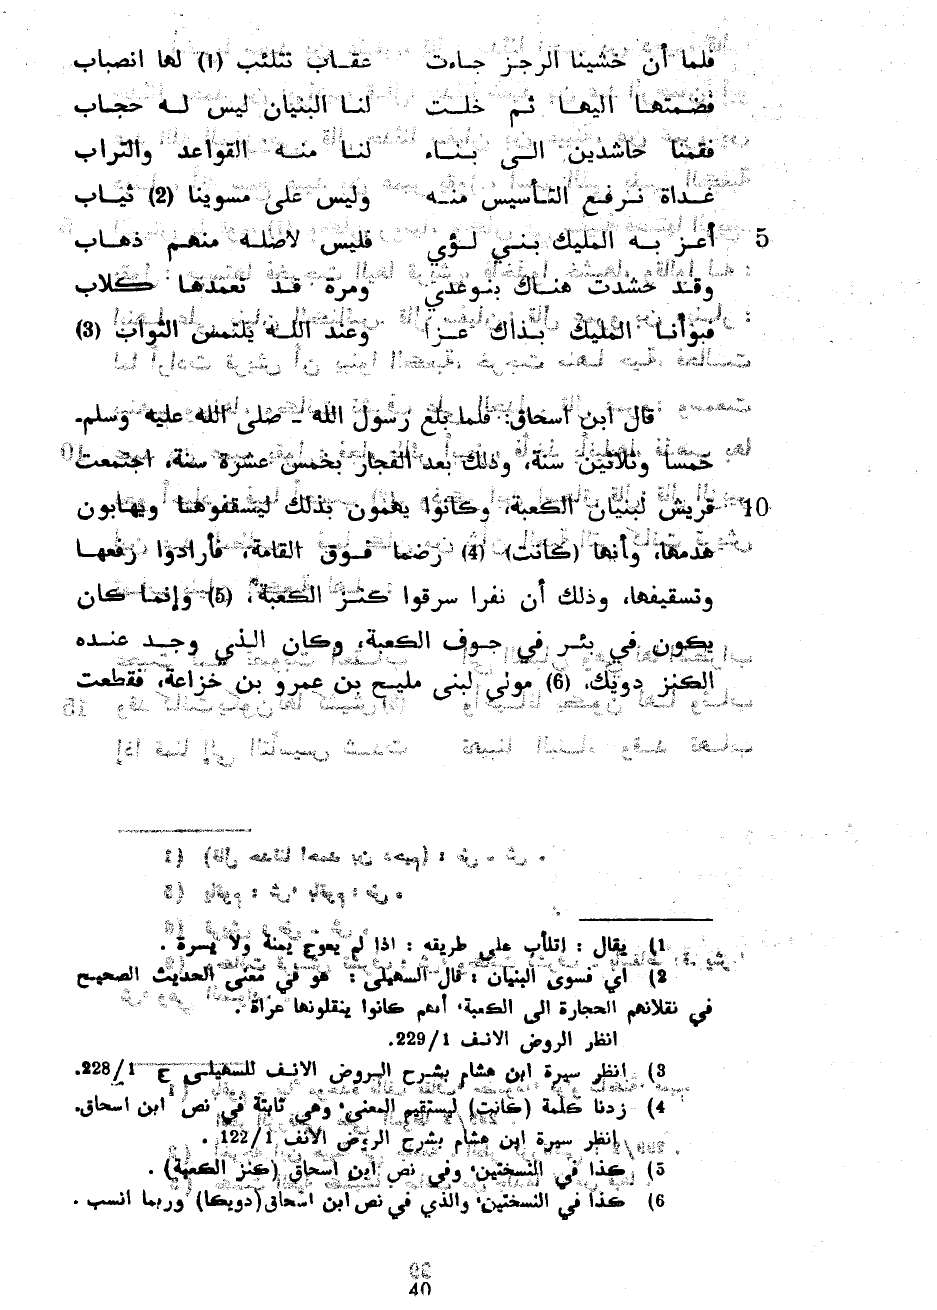 فلما أن خشينا الرجز جاءت عقاب تتلئب (1) لها انصباب
فضمتها اليها ثم خلت لنا البنيان ليس له حجاب
فقمنا حاشدين الى بناء لنا منه القواعد والتراب
غداة نرفع التأسيس منه وليس على مسوينا (2) ثياب
5 أعز به المليك بني لؤي فليس لأصله منهم ذهاب
وقد حشدت هناك بنوعدي ومرة قد تعمدها كلاب
فبوأنا المليك بذاك عزا وعند الله يلتمس الثواب (3)
قال ابن اسحاق: فلما بلغ رسول الله ـ صلى الله عليه وسلم ـ
خمسا وثلاثين سنة، وذلك بعد الفجار بخمس عشرة سنة، اجتمعت
10 قريش لبنيان الكعبة، وكانوا يهمون بذلك ليسقفوها ويهابون
هدمها، وأنها (كانت) (4) رضما فوق القامة، فأرادوا رفعها
وتسقيفها، وذلك أن نفرا سرقوا كنز الكعبة، (5) وإنما كان
يكون في بئر في جوف الكعبة، وكان الذي وجد عنده
الكنز دويك، (6) مولى لبنى مليح بن عمرو بن خزاعة، فقطعت
1) يقال : إتلأب على طريقه : اذا لم يعوج يمنة ولا يسرة .
2) اي فسوى البنيان : قال السهيلى : هو في معنى الحديث الصحيح
في نقلانهم الحجارة الى الكعبة، أنهم كانوا ينقلونها عراة .
انظر الروض الانف 229/1.
3) انظر سيرة ابن هشام بشرح الروض الانف للسهيلى ج 228/1.
4) زدنا كلمة (كانت) ليستقيم المعنى، وهي ثابتة في نص ابن اسحاق.
إنظر سيرة ابن هشام بشرح الروض الانف 122/1 .
5) كذا في النسختين، وفي نص ابن اسحاق (كنز الكعبة) .
6) كذا في النسختين، والذي في نص ابن اسحاق(دويكا) وربما انسب .
40